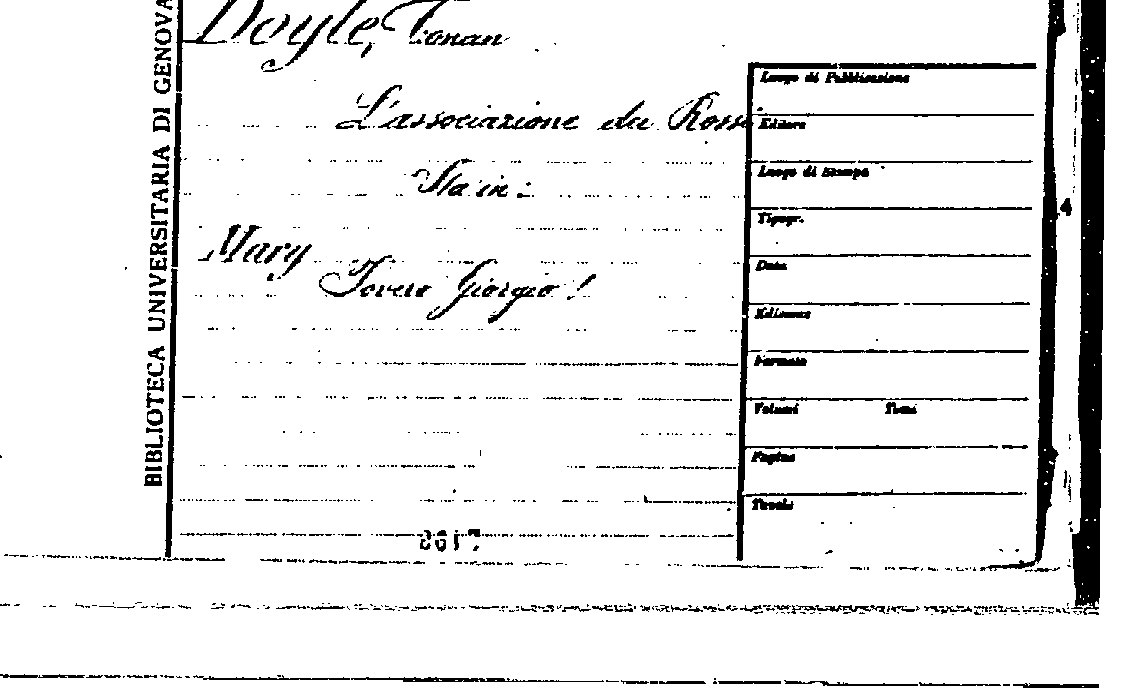 BIBLIOTECA UNIVERSITARIA DI GENOVA
Doyle, Conan
L'associazione dei Rossi
Sta in:
Mary
Povero Giorgio!
Luogo di Pubblicazione
Editore
Luogo di Stampa
Tipogr.
Data
Edizione
Formato
Volumi Tomi
Pagine
Tavole
4